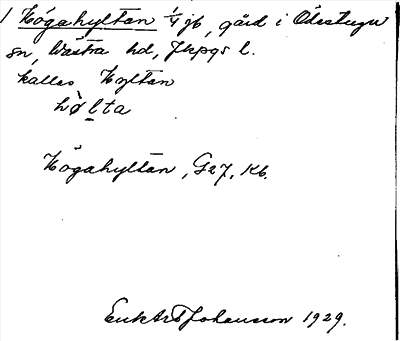 1 Högahyltan 1/4 jb, gård i Ödestugu
sn, Västra hd, Jkpgs l.
kallas Hyltan
hø̀lta
Högahyltan, G27, Kb.
Johansson 1929.